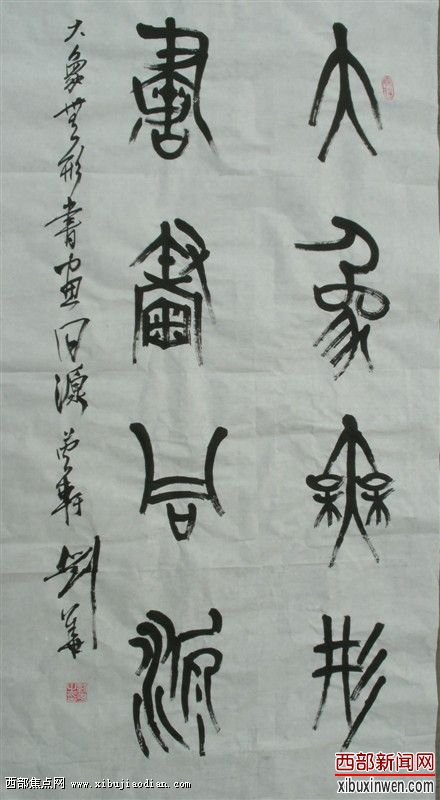 大象無形
書畫同源
大象無形書畫同源 草軒 劉華
西部焦点网 www.xibujiaodian.com
西部新闻网
xibuxinwen.com